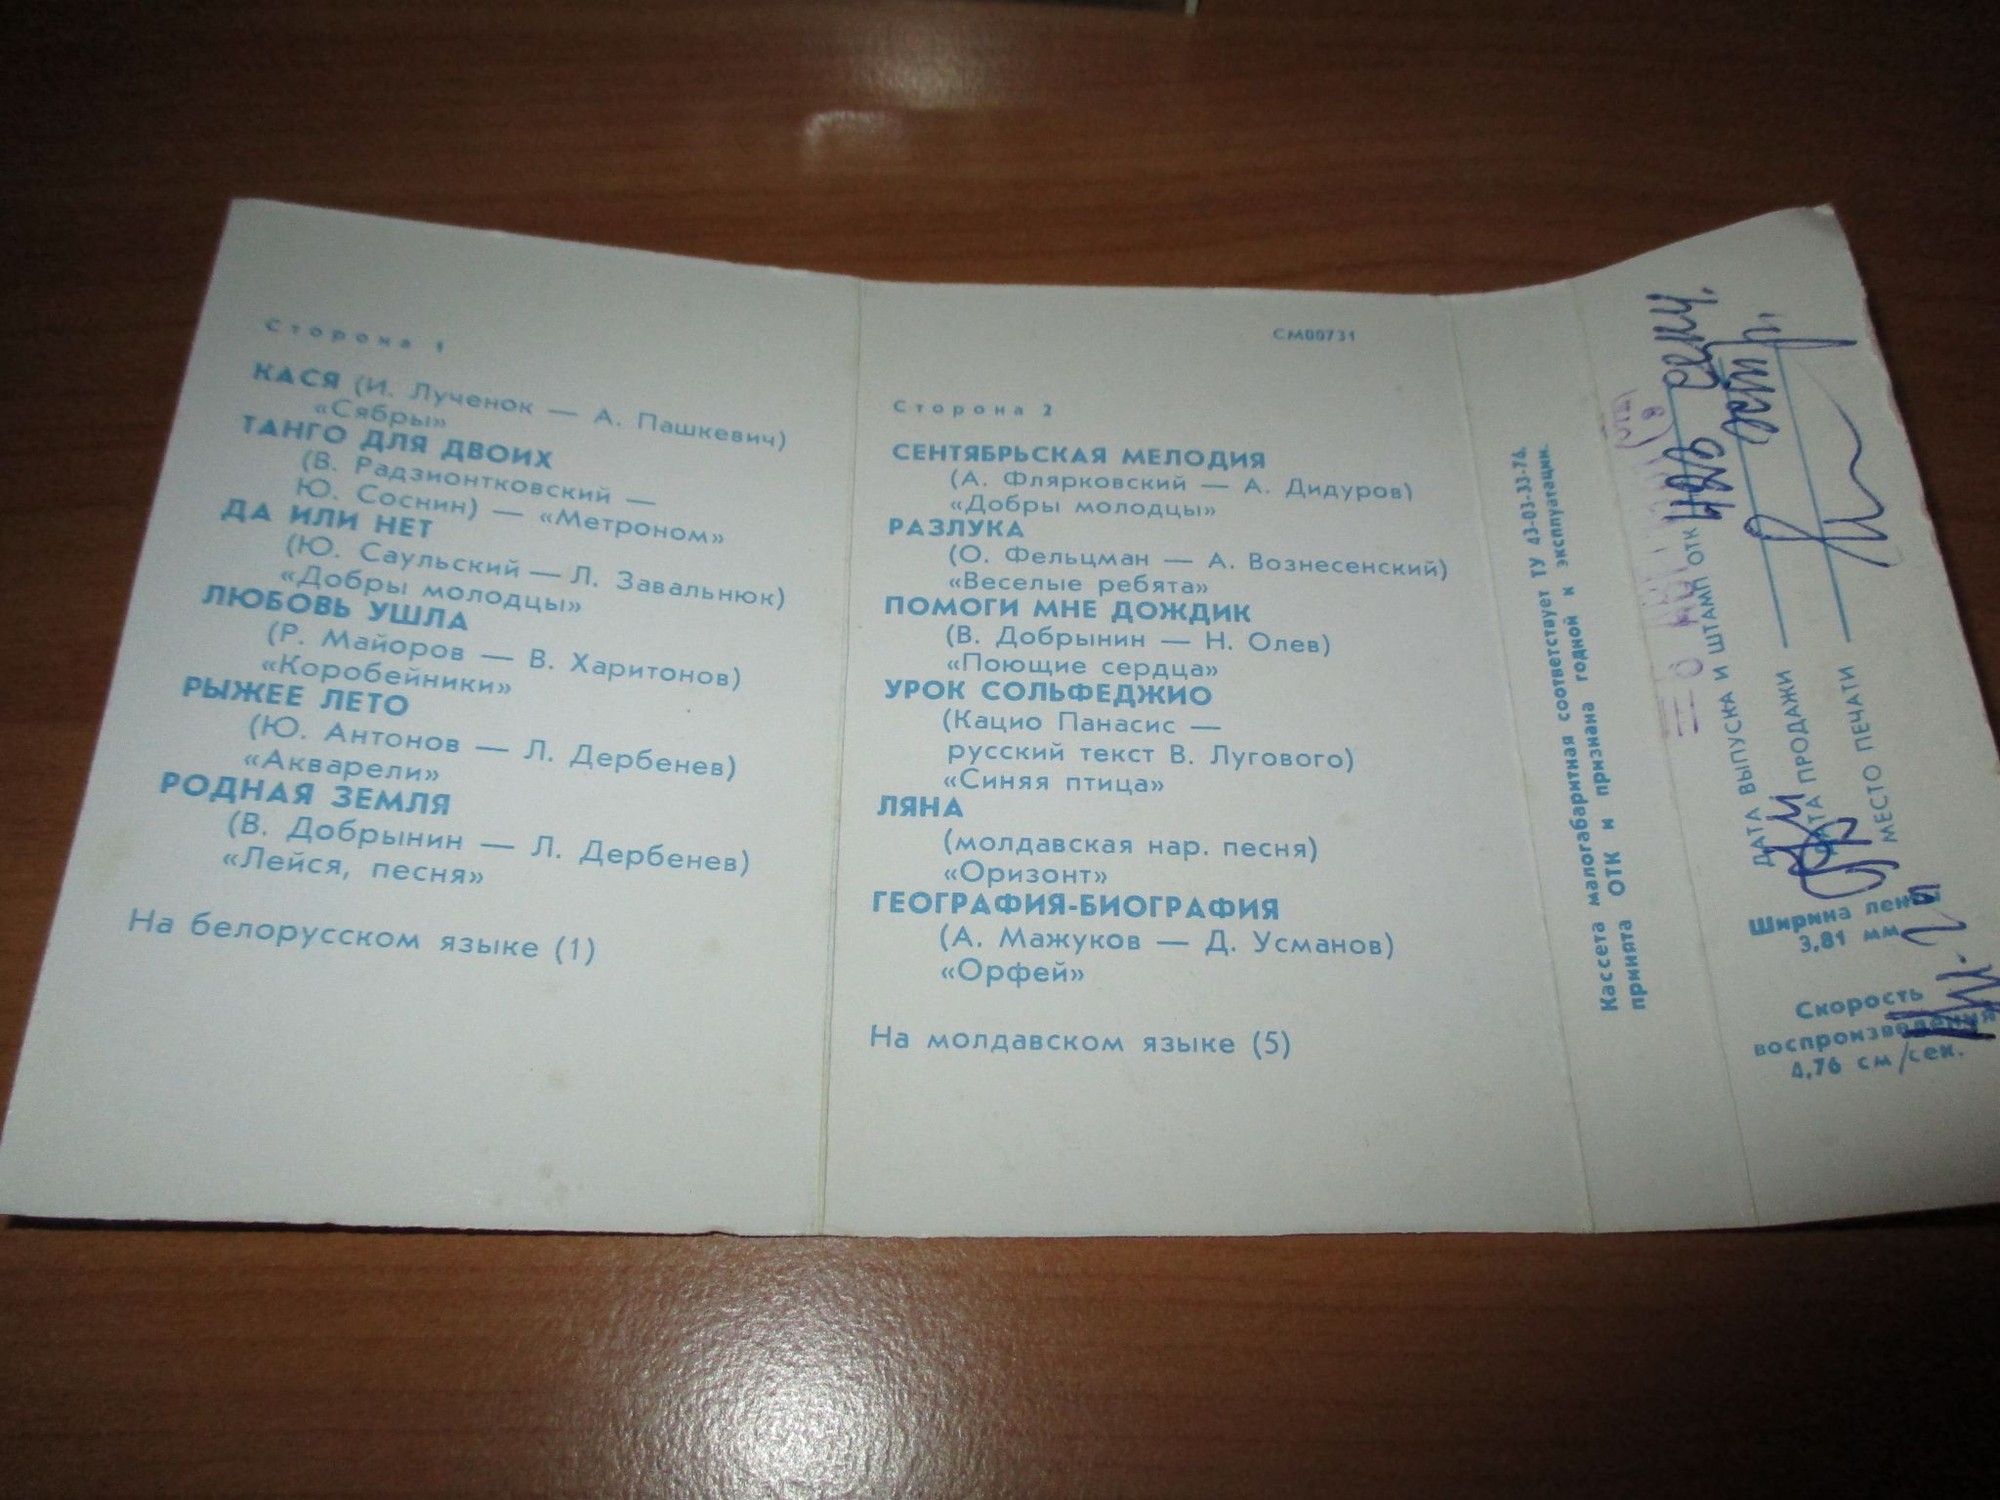 Сторона 1
КАСЯ (И. Лученок — А. Пашкевич)
«Сябры»
ТАНГО ДЛЯ ДВОИХ
(В. Радзионтковский —
Ю. Соснин) — «Метроном»
ДА ИЛИ НЕТ
(Ю. Саульский — Л. Завальнюк)
«Добры молодцы»
ЛЮБОВЬ УШЛА
(Р. Майоров — В. Харитонов)
«Коробейники»
РЫЖЕЕ ЛЕТО
(Ю. Антонов — Л. Дербенев)
«Акварели»
РОДНАЯ ЗЕМЛЯ
(В. Добрынин — Л. Дербенев)
«Лейся, песня»
На белорусском языке (1)
СМ00731
Сторона 2
СЕНТЯБРЬСКАЯ МЕЛОДИЯ
(А. Флярковский — А. Дидуров)
«Добры молодцы»
РАЗЛУКА
(О. Фельцман — А. Вознесенский)
«Веселые ребята»
ПОМОГИ МНЕ ДОЖДИК
(В. Добрынин — Н. Олев)
«Поющие сердца»
УРОК СОЛЬФЕДЖИО
(Кацио Панасис —
русский текст В. Лугового)
«Синяя птица»
ЛЯНА
(молдавская нар. песня)
«Оризонт»
ГЕОГРАФИЯ-БИОГРАФИЯ
(А. Мажуков — Д. Усманов)
«Орфей»
На молдавском языке (5)
Кассета малогабаритная соответствует ТУ 43-03-33-76,
принята ОТК и признана годной к эксплуатации.
ДАТА ВЫПУСКА И ШТАМП ОТК
ДАТА ПРОДАЖИ
МЕСТО ПЕЧАТИ
Ширина ленты
3,81 мм
Скорость
воспроизведения
4,76 см/сек.